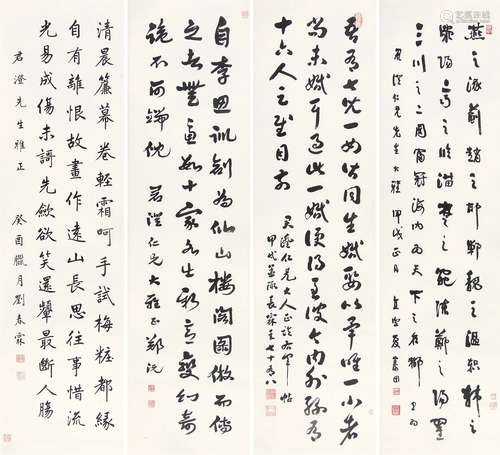 燕之涿薊趙之邯鄲魏之溫軹韓之
滎陽齊之臨淄楚之宛陳鄭之陽翟
三川之二周富冠海內為天下之名都
君澄仁兄先生大雅 甲戌正月
吾有七兒一女皆同生婚娶以畢唯一小者
尚未婚耳過此一婚便得至彼今內外孫有
十六人足慰目前
君澄仁兄大人正臨右軍帖
自李思訓創為仙山樓閣圖倣而傳
之者無慮數十家各出新意變幻奇
詭不可端倪 君澄仁兄大雅正 鄭沅
清晨簾幕卷輕霜呵手試梅粧都緣
自有離恨故畫作遠山長思往事惜流
光易成傷未謌先斂欲笑還顰最斷人腸
君澄先生雅正 癸酉臘月劉春霖